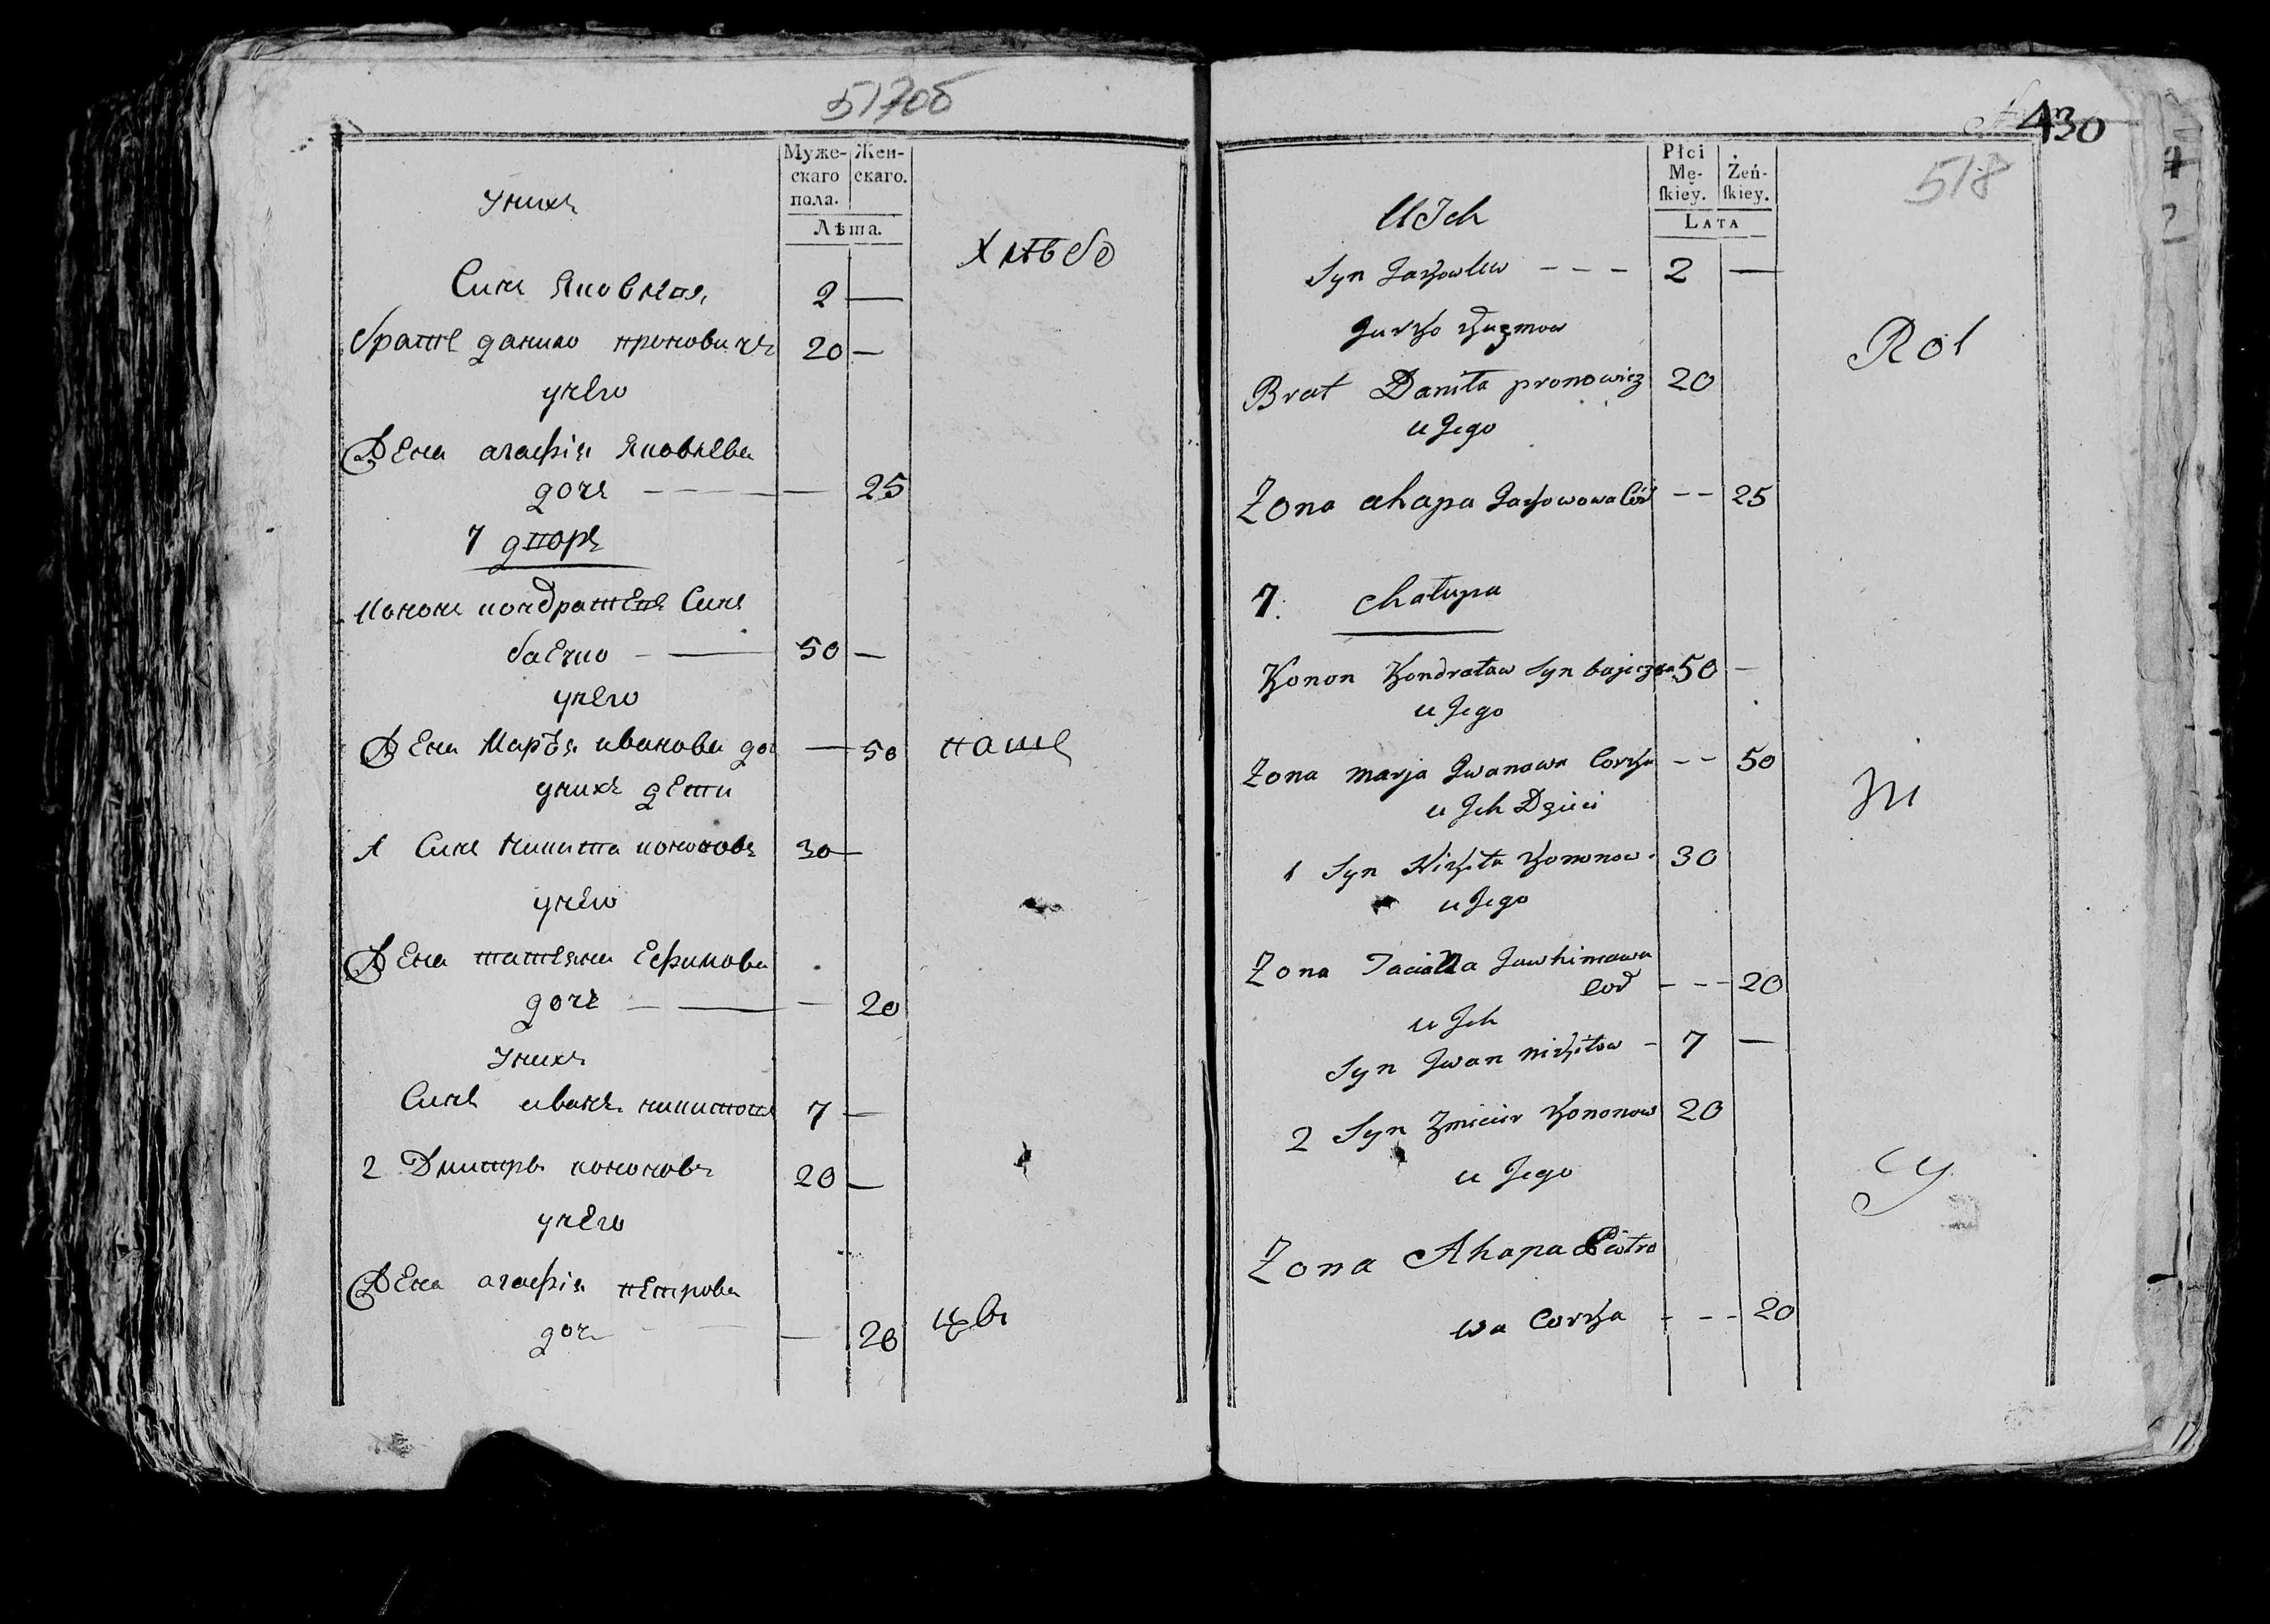 517об
Муже-
скаго
пола.
Жен-
скаго.
Лѣта.
у нихъ
Хлѣбо
Синъ Яковлевъ 2 —
братъ данило проновичъ 20 —
у него
Жена агафія Яковлева
дочь — — 25
7 дворъ
кононъ кондратевъ Синъ
баечко — 50 —
у него
Жена Маръя иванова доч — 50 паше
у нихъ дети
1 Синъ Никита кононовъ 30 —
у него
Жена татяна Ефимова
дочь — — 20
у нихъ
Синъ иванъ никитовъ 7 —
2 Дмитръ кононовъ 20 —
у него
Жена агафія петрова
доч — 20 цы
430
518
Płci
Mę-
ſkiey.
Żeń-
ſkiey.
LATA
U Ich
Syn Jakowlew - - - 2 —
Jurko Kuzmow
Rol
Brat Daniła pronowicz 20
u Jego
Zona ahapa Jakowowa Cór - - 25
7. chałupa
Konon Kondrataw Syn bajeczko 50 —
u Jego
Zona marja Iwanowa Corka - - 50
ni
u Ich Dzieci
1 Syn Nikita Kononow 30
u Jego
Zona Taciana Jawhimawa
Cor - - - 20
u Ich
Syn Iwan nikitow - 7 —
2 Syn Zmicier Kononow 20
cy
u Jego
Zona Ahapa Piotro
wa Corka - - - 20